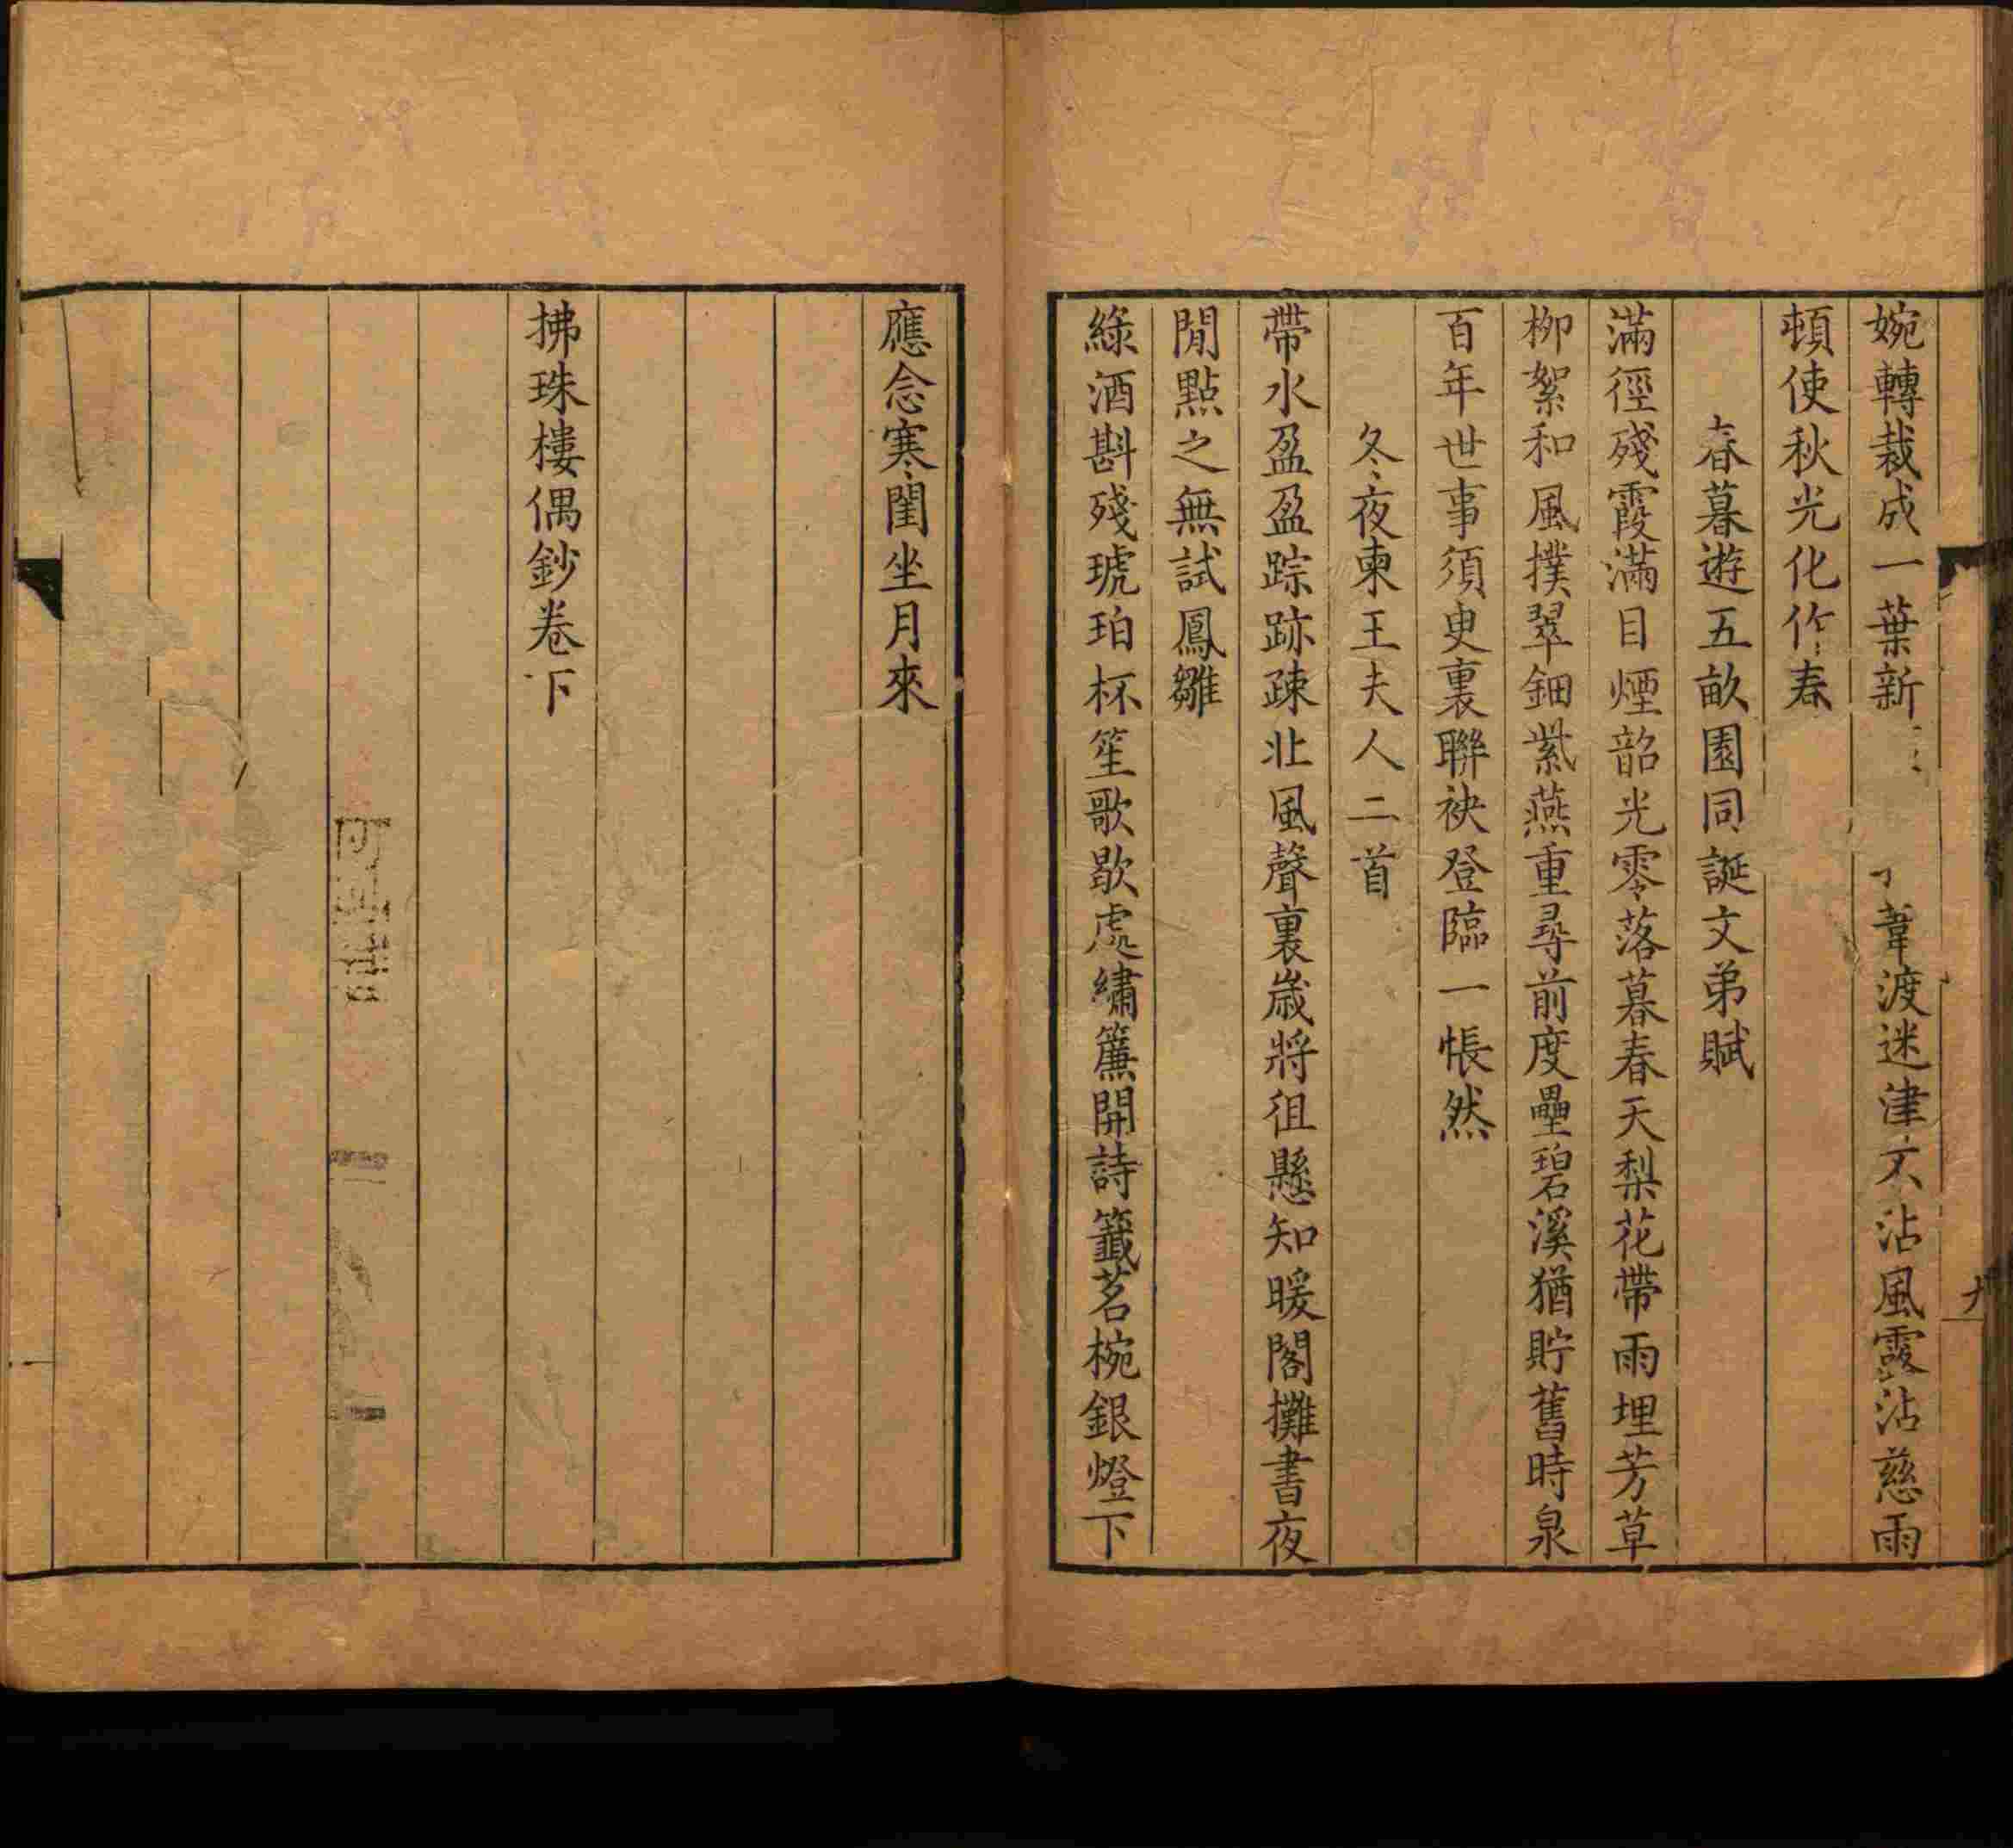 婉轉裁成一葉新 葦渡迷津不沾風露沾慈雨
頓使秋光化作春
春暮遊五畝園同誕文弟賦
滿徑殘霞滿目煙韶光零落暮春天梨花帶雨埋芳草
柳絮和風撲翠鈿紫燕重尋前度壘碧溪猶貯舊時泉
百年世事須臾裏聯袂登臨一悵然
冬夜柬王夫人二首
帶水盈盈踪跡疎北風聲裏歲將徂懸知暖閣攤書夜
閒點之無試鳳雛
綠酒斟殘琥珀杯笙歌歇處繡簾開詩籤茗椀銀燈下
應念寒閨坐月來
拂珠樓偶鈔卷下